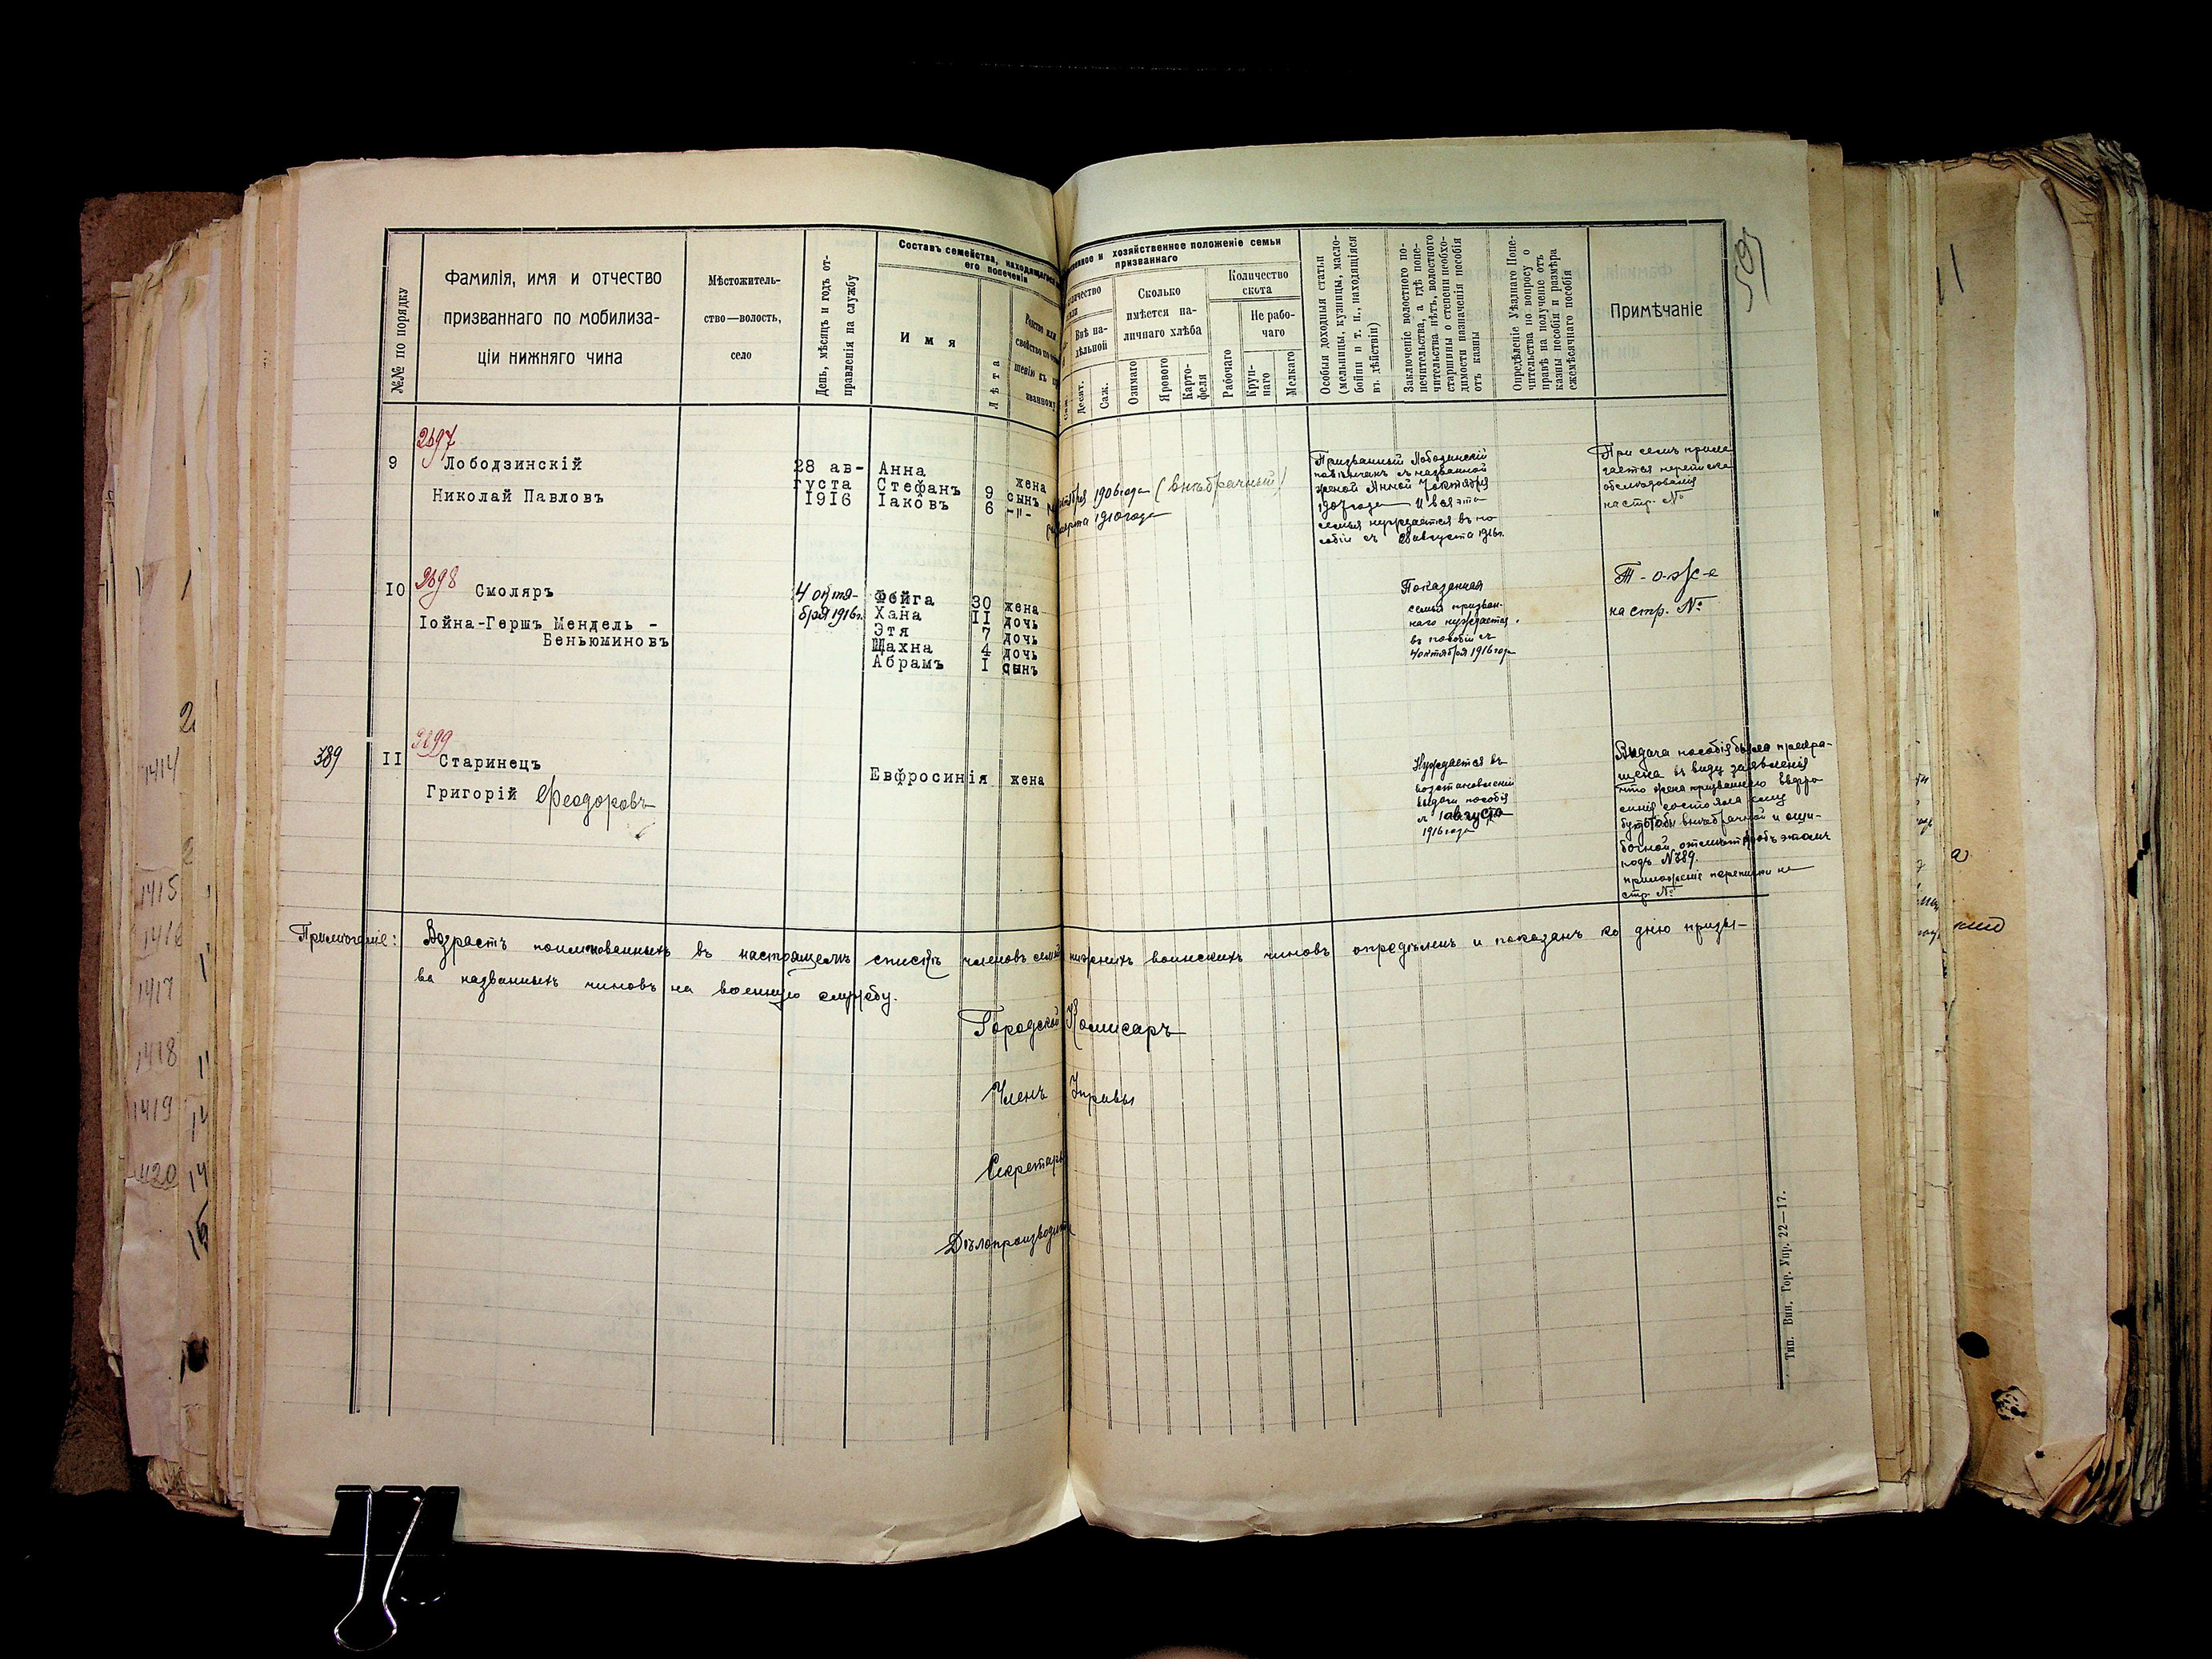 №№ по порядку
Фамилія, имя и отчество
призваннаго по мобилиза-
ціи нижняго чина
Мѣстожитель-
ство—волость,
село
День, мѣсяцъ и годъ от-
правленія на службу
Составъ семейства, находящагося
его попеченіи
Имя
Лѣта
Родство или
свойство по
шенію къ
званному
и хозяйственное положеніе семьи
призваннаго
Внѣ на-
дѣльной
Десят.
Саж.
Сколько
имѣется на-
личнаго хлѣба
Озимаго
Яроваго
Карто-
феля
Количество
скота
Рабочаго
Не рабо-
чаго
Круп-
наго
Мелкаго
Особыя доходныя статьи
(мельницы, кузницы, масло-
бойни и т. п., находящіяся
въ дѣйствіи)
Заключеніе волостного по-
печительства, а гдѣ попе-
чительства нѣтъ, волостного
старшины о степени необхо-
димости назначенія пособія
отъ казны
Опредѣленіе Уѣзднаго Попе-
чительства по вопросу о
правѣ на полученіе отъ
казны пособія и размѣра
ежемѣсячнаго пособія
Примѣчаніе
2697
9
Лободзинскій
Николай Павловъ
28 ав-
густа
1916
Анна жена
Стефанъ 9 сынъ
Іаковъ 6 -"-
1906 года (внѣбрачный)
1910 года
Призванный Лободзинскій
повѣнчанъ съ названной
женой Анной 7 октября
1907 года И вся эта
семья нуждается въ по
собіи съ 28 августа 1916 г.
При семъ прила
гается переписка
обслѣдованія
на стр. №
2698
10
Смоляръ
Іойна-Гершъ Мендель -
Беньюминовъ
4 октя-
бря 1916 г.
Фейга 30 жена
Хана 11 дочь
Этя 7 дочь
Шахна 4 дочь
Абрамъ 1 сынъ
Показанная
семья призван-
наго нуждается
въ пособіи съ
4 октября 1916 года
Т-о-ж-е
на стр. №
2699
389
11
Старинецъ
Григорій Феодоровъ
Евфросинія жена
Нуждается въ
возстановленіи
выдачи пособія
съ 1 августа
1916 года
Выдача пособія была прекра-
щена въ виду заявленія
что жена призваннаго Евфро
синія состояла ему
будтобы внѣбрачной и оши-
бочной отмѣтки объ этомъ
подъ №389.
приложеніе переписки на
стр. №
Примѣчаніе: Возрастъ поименованныхъ въ настоящемъ спискѣ членовъ семей нижнихъ воинскихъ чиновъ опредѣленъ и показанъ ко дню призы-
ва названныхъ чиновъ на военную службу.
Городской Комисаръ
Членъ Управы
Секретарь
Дѣлопроизводитель
Тип. Вин. Гор. Упр. 22—17.
1414
1415
1416
1417
1418
1419
1420